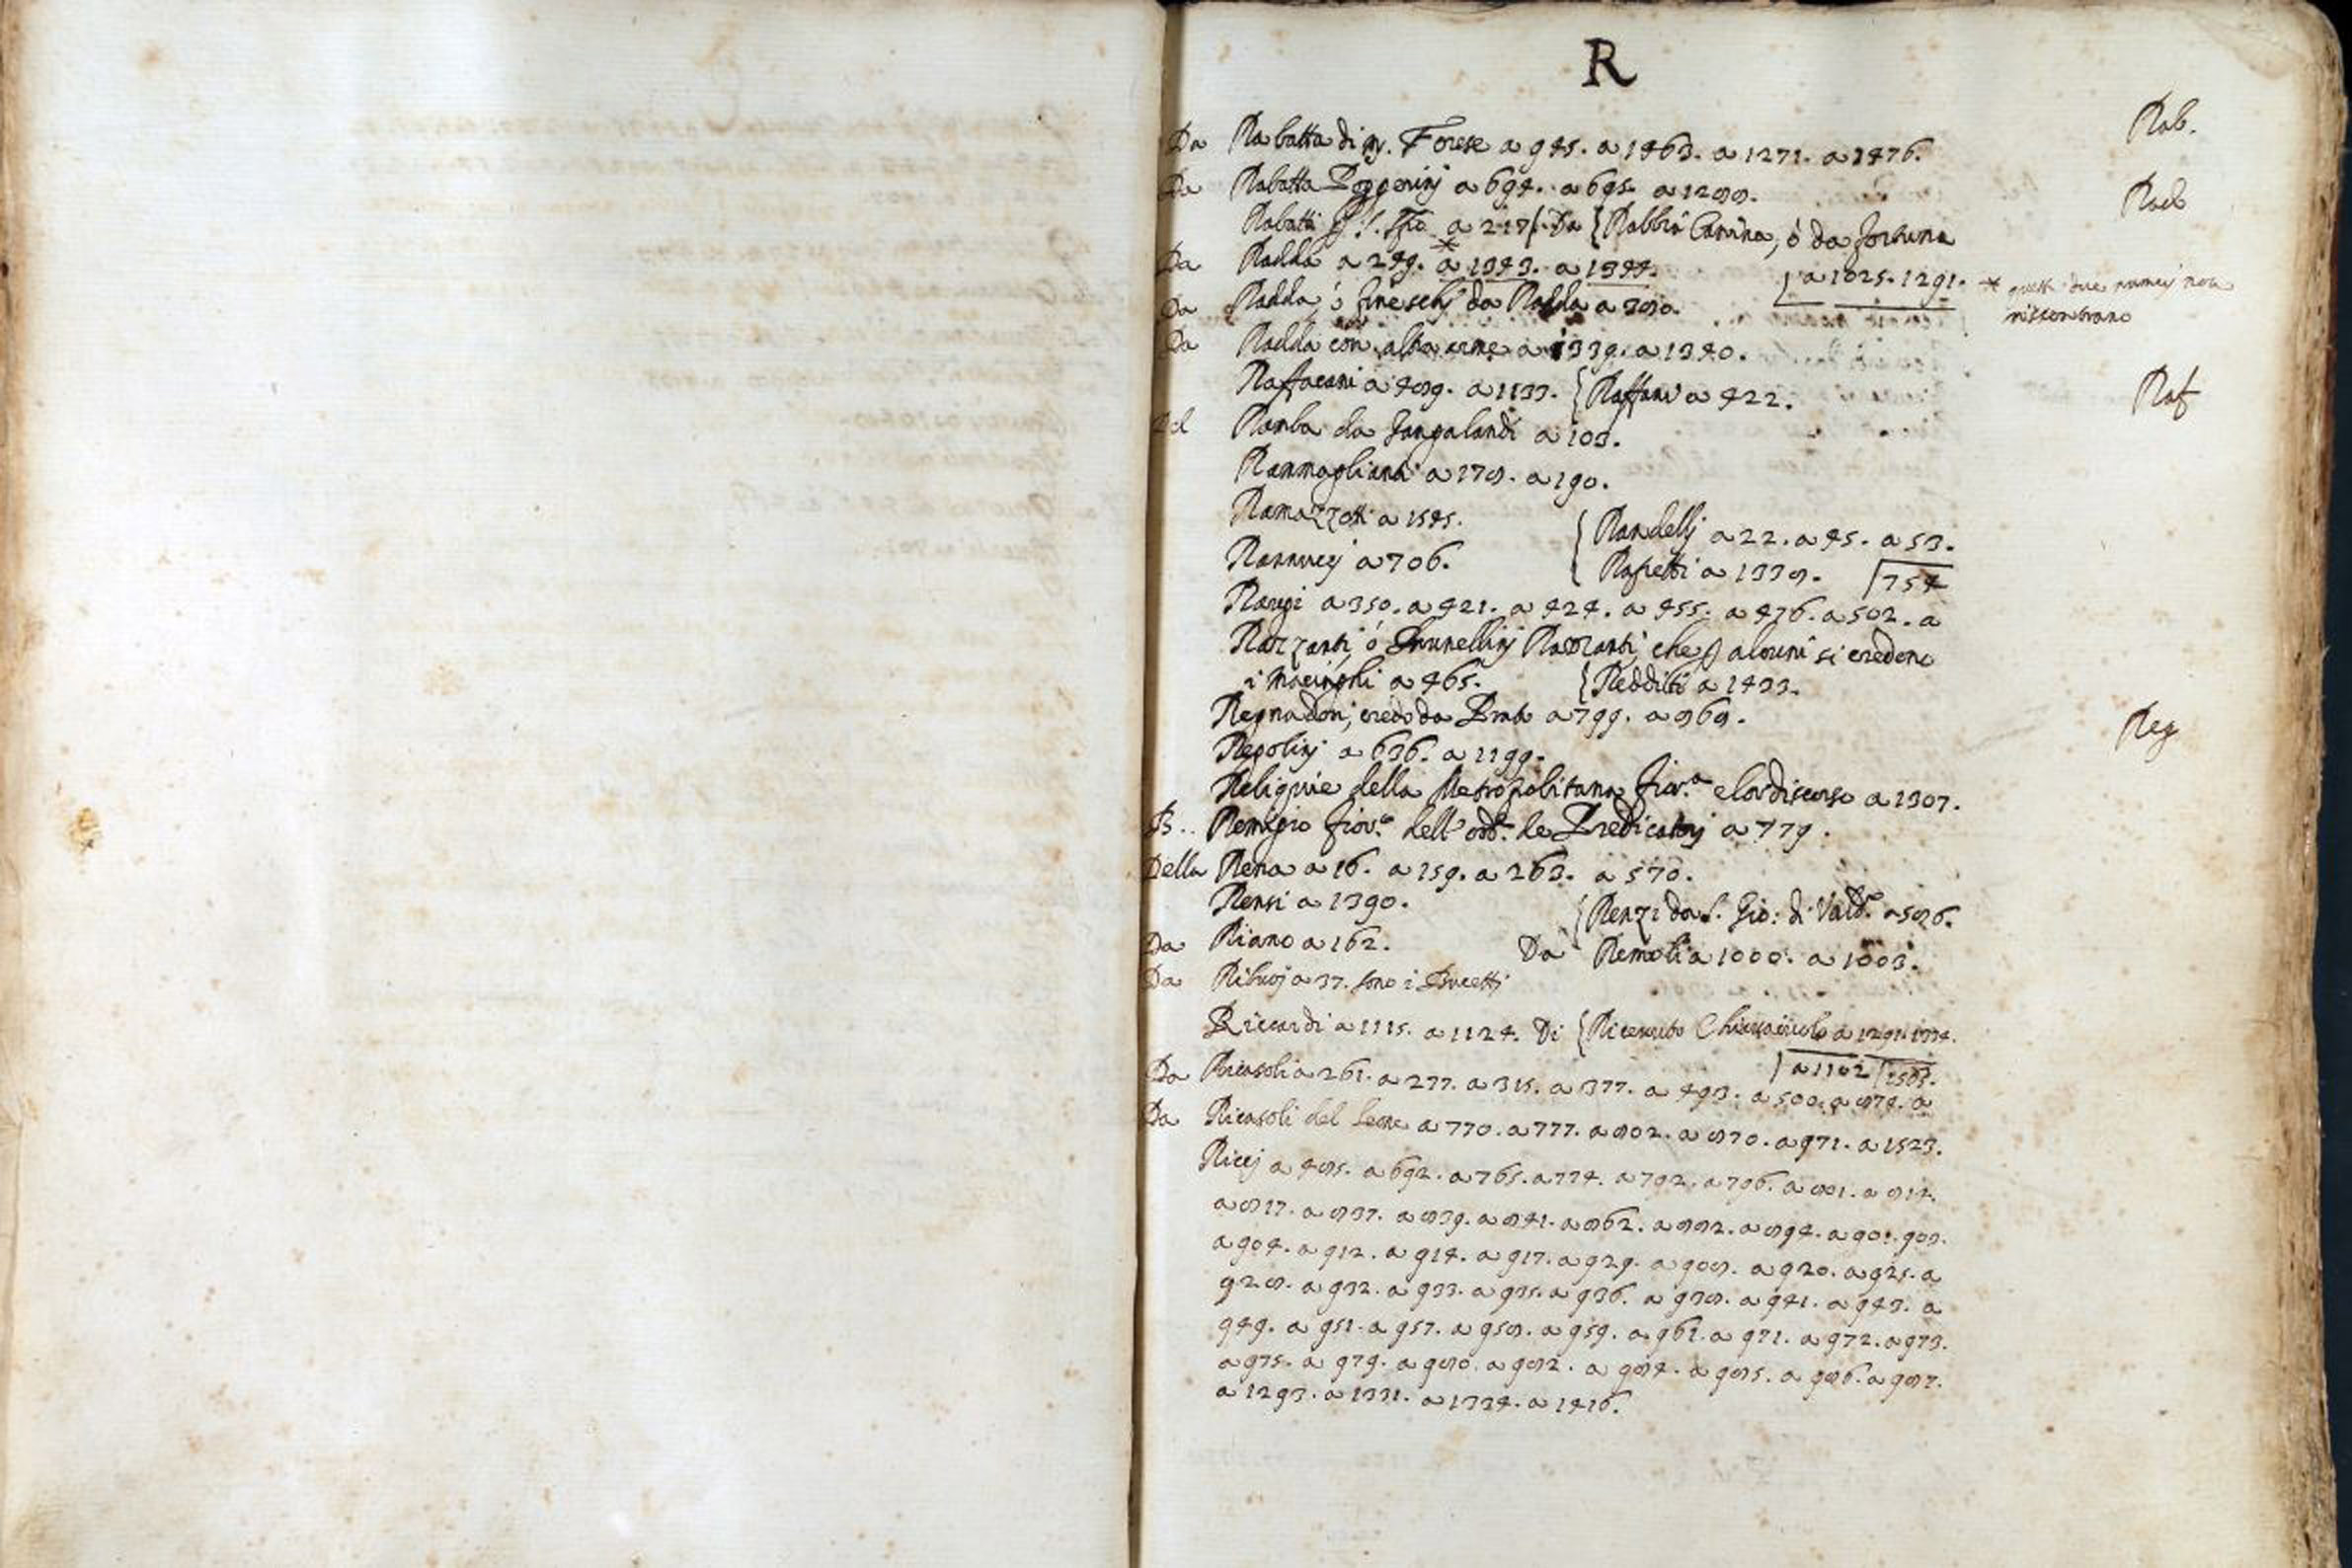 R
Rab.
Da Rabatta di m. Forese a 945. a 1463. a 1271. a 1476.
Da Rabatta Poggerinj a 694. a 695. a 1288.
Rad
Rabatti a 217 Da { Rabbia Canina, ò da fortuna
Da Radda a 249. * a 1343. a 1344.
a 1025. 1291. * questi due numerj non
riscontrano
Da Radda, ò fineschj da Radda a 780.
Da Radda con altra arme a 1339. a 1340.
Raffacani a 489. a 1133. { Raffani a 422.
Raf
Del Ramba da Gangalandi a 103.
Rammagliani a 178. a 190.
Ramazzotti a 1545.
{ Randellj a 22. a 45. a 53.
Rannuccj a 706.
Rapetti a 1338. 754
Raugi a 350. a 421. a 424. a 455. a 476. a 502. a
Razzanti, ò Brunellinj Razzanti, che alcuni si credono
i Macinghi a 465. { Redditi a 1433.
Regnadori, credo da Prato a 799. a 868.
Reg
Regolinj a 636. a 1199.
Reliquie della Metropolitana fior.a e lor discorso a 1307.
B.. Remigio fior.o dell' ord. de Predicatorj a 779.
Della Rena a 16. a 159. a 263. a 570.
Rensi a 1390. { Renzi da S. Gio: di Vald.o a 586.
Da Riano a 162. Da Remoli a 1000. a 1003.
Da Ribuoj a 37. sono i Bucetti
Riccardi a 1115. a 1124. Di { Ricevuto a 1291. 1334.
a 1102 1505.
Da Ricasoli a 261. a 277. a 315. a 377. a 493. a 500. a 874. a
Da Ricasoli del Leone a 770. a 777. a 802. a 870. a 971. a 1523.
Riccj a 485. a 692. a 765. a 774. a 792. a 796. a 801. a 814.
a 817. a 837. a 839. a 841. a 862. a 882. a 894. a 901. 903.
a 904. a 912. a 914. a 917. a 929. a 908. a 920. a 925. a
928. a 932. a 933. a 935. a 936. a 938. a 941. a 943. a
949. a 951. a 957. a 958. a 959. a 961. a 971. a 972. a 973.
a 975. a 979. a 980. a 982. a 984. a 985. a 986. a 987.
a 1293. a 1331. a 1334. a 1416.